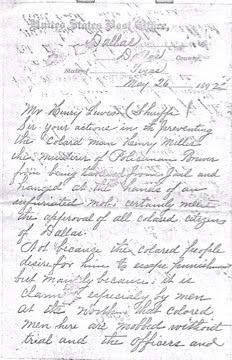 United States Post Office,
Dallas
Dallas County,
State of Texas
May 26 1892
Mr Henry Lewis (Shuffe)
Sir your actions in the preventing
the colard man Henry Miller
the murderer of Policeman Brewer
from being taken from jail and
hanged at the hands of an
infuriated mob, certainly meets
the approval of all colared citizens
of Dallas.
Not because the colared people
desire for him to escape punishment
but mainly because it is
claimed especialy by men
at the North, that colored
men here are mobbed without
trial and the officers and